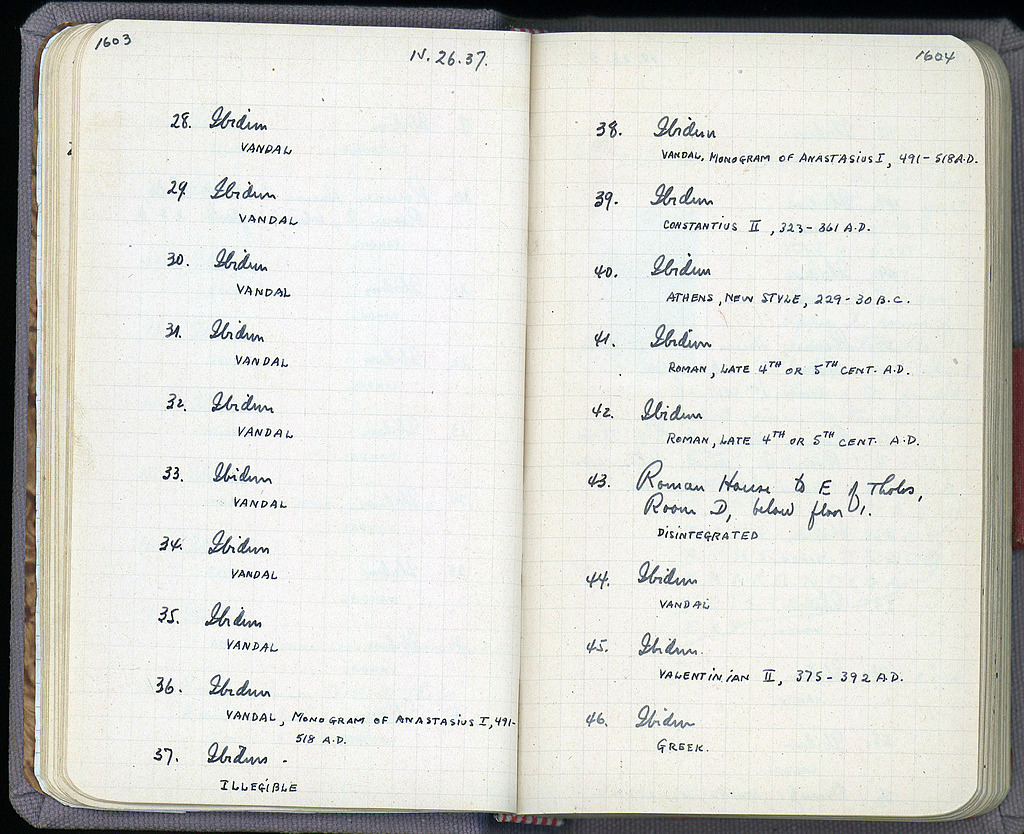 1603
IV.26.37.
28. Ibidem
VANDAL
29. Ibidem
VANDAL
30. Ibidem
VANDAL
31. Ibidem
VANDAL
32. Ibidem
VANDAL
33. Ibidem
VANDAL
34. Ibidem
VANDAL
35. Ibidem
VANDAL
36. Ibidem
VANDAL, MONOGRAM OF ANASTASIUS I, 491-
518 A.D.
37. Ibidem -
ILLEGIBLE
1604
38. Ibidem
VANDAL, MONOGRAM OF ANASTASIUS I, 491-518 A.D.
39. Ibidem
CONSTANTIUS II, 323-361 A.D.
40. Ibidem
ATHENS, NEW STYLE, 229-30 B.C.
41. Ibidem
ROMAN, LATE 4TH OR 5TH CENT. A.D.
42. Ibidem
ROMAN, LATE 4TH OR 5TH CENT. A.D.
43. Roman House to E of Tholos,
Room D, below floor 1.
DISINTEGRATED
44. Ibidem
VANDAL
45. Ibidem.
VALENTINIAN II, 375-392 A.D.
46. Ibidem
GREEK.